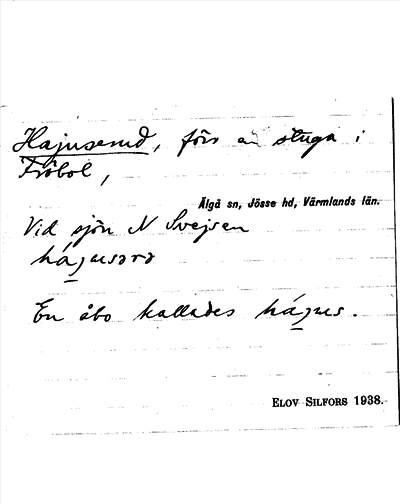 Hajuserud, förr en stuga i
Fröbol,
Älgå sn, Jösse hd, Värmlands län.
Vid sjön N Svejsen
En åbo kallades
ELOV SILFORS 1938.